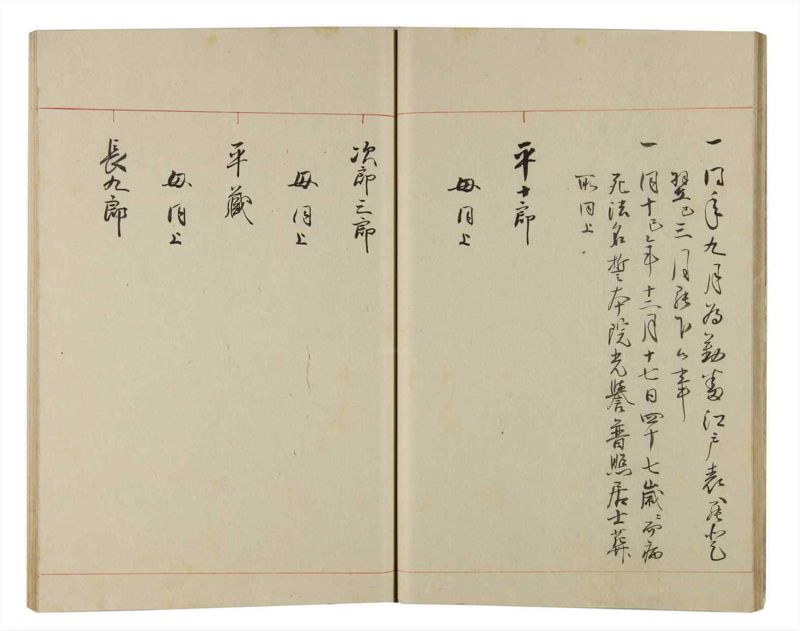 一同年九月為勤番江戸表罷登
翌巳三月罷下候事
一同十巳年十二月十七日四十七歳ニ而病
死法名誓本院光誉普照居士葬
所同上
平十郎
母同上
次郎三郎
母同上
平蔵
母同上
長九郎